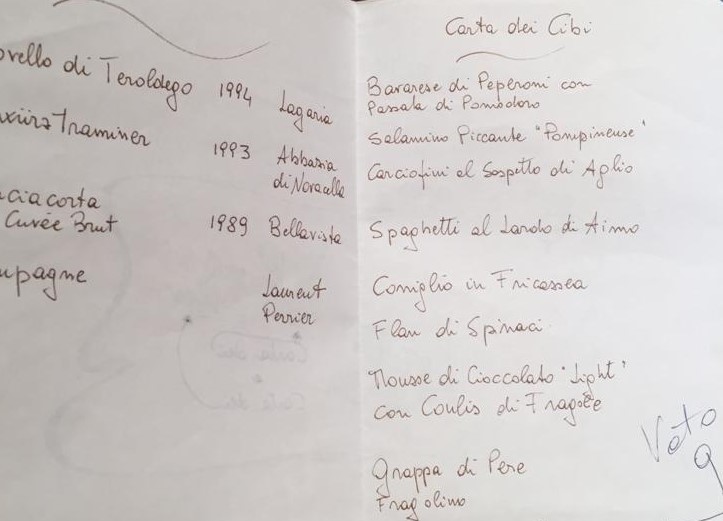 ovello di Teroldego 1994 Lagaria
Traminer 1993 Abbazia
di Novacella
ciacorta
Cuvée Brut 1989 Bellavista
mpagne Laurent
Perrier
Carta dei Cibi
Bavarese di Peperoni con
Passata di Pomodoro
Salamino Piccante "Pompinense"
Carciofini al Sospetto di Aglio
Spaghetti al Lardo di Aimo
Coniglio in Fricassea
Flan di Spinaci
Mousse di Cioccolato "Light"
con Coulis di Fragole
Grappa di Pere
Fragolino
Voto
9